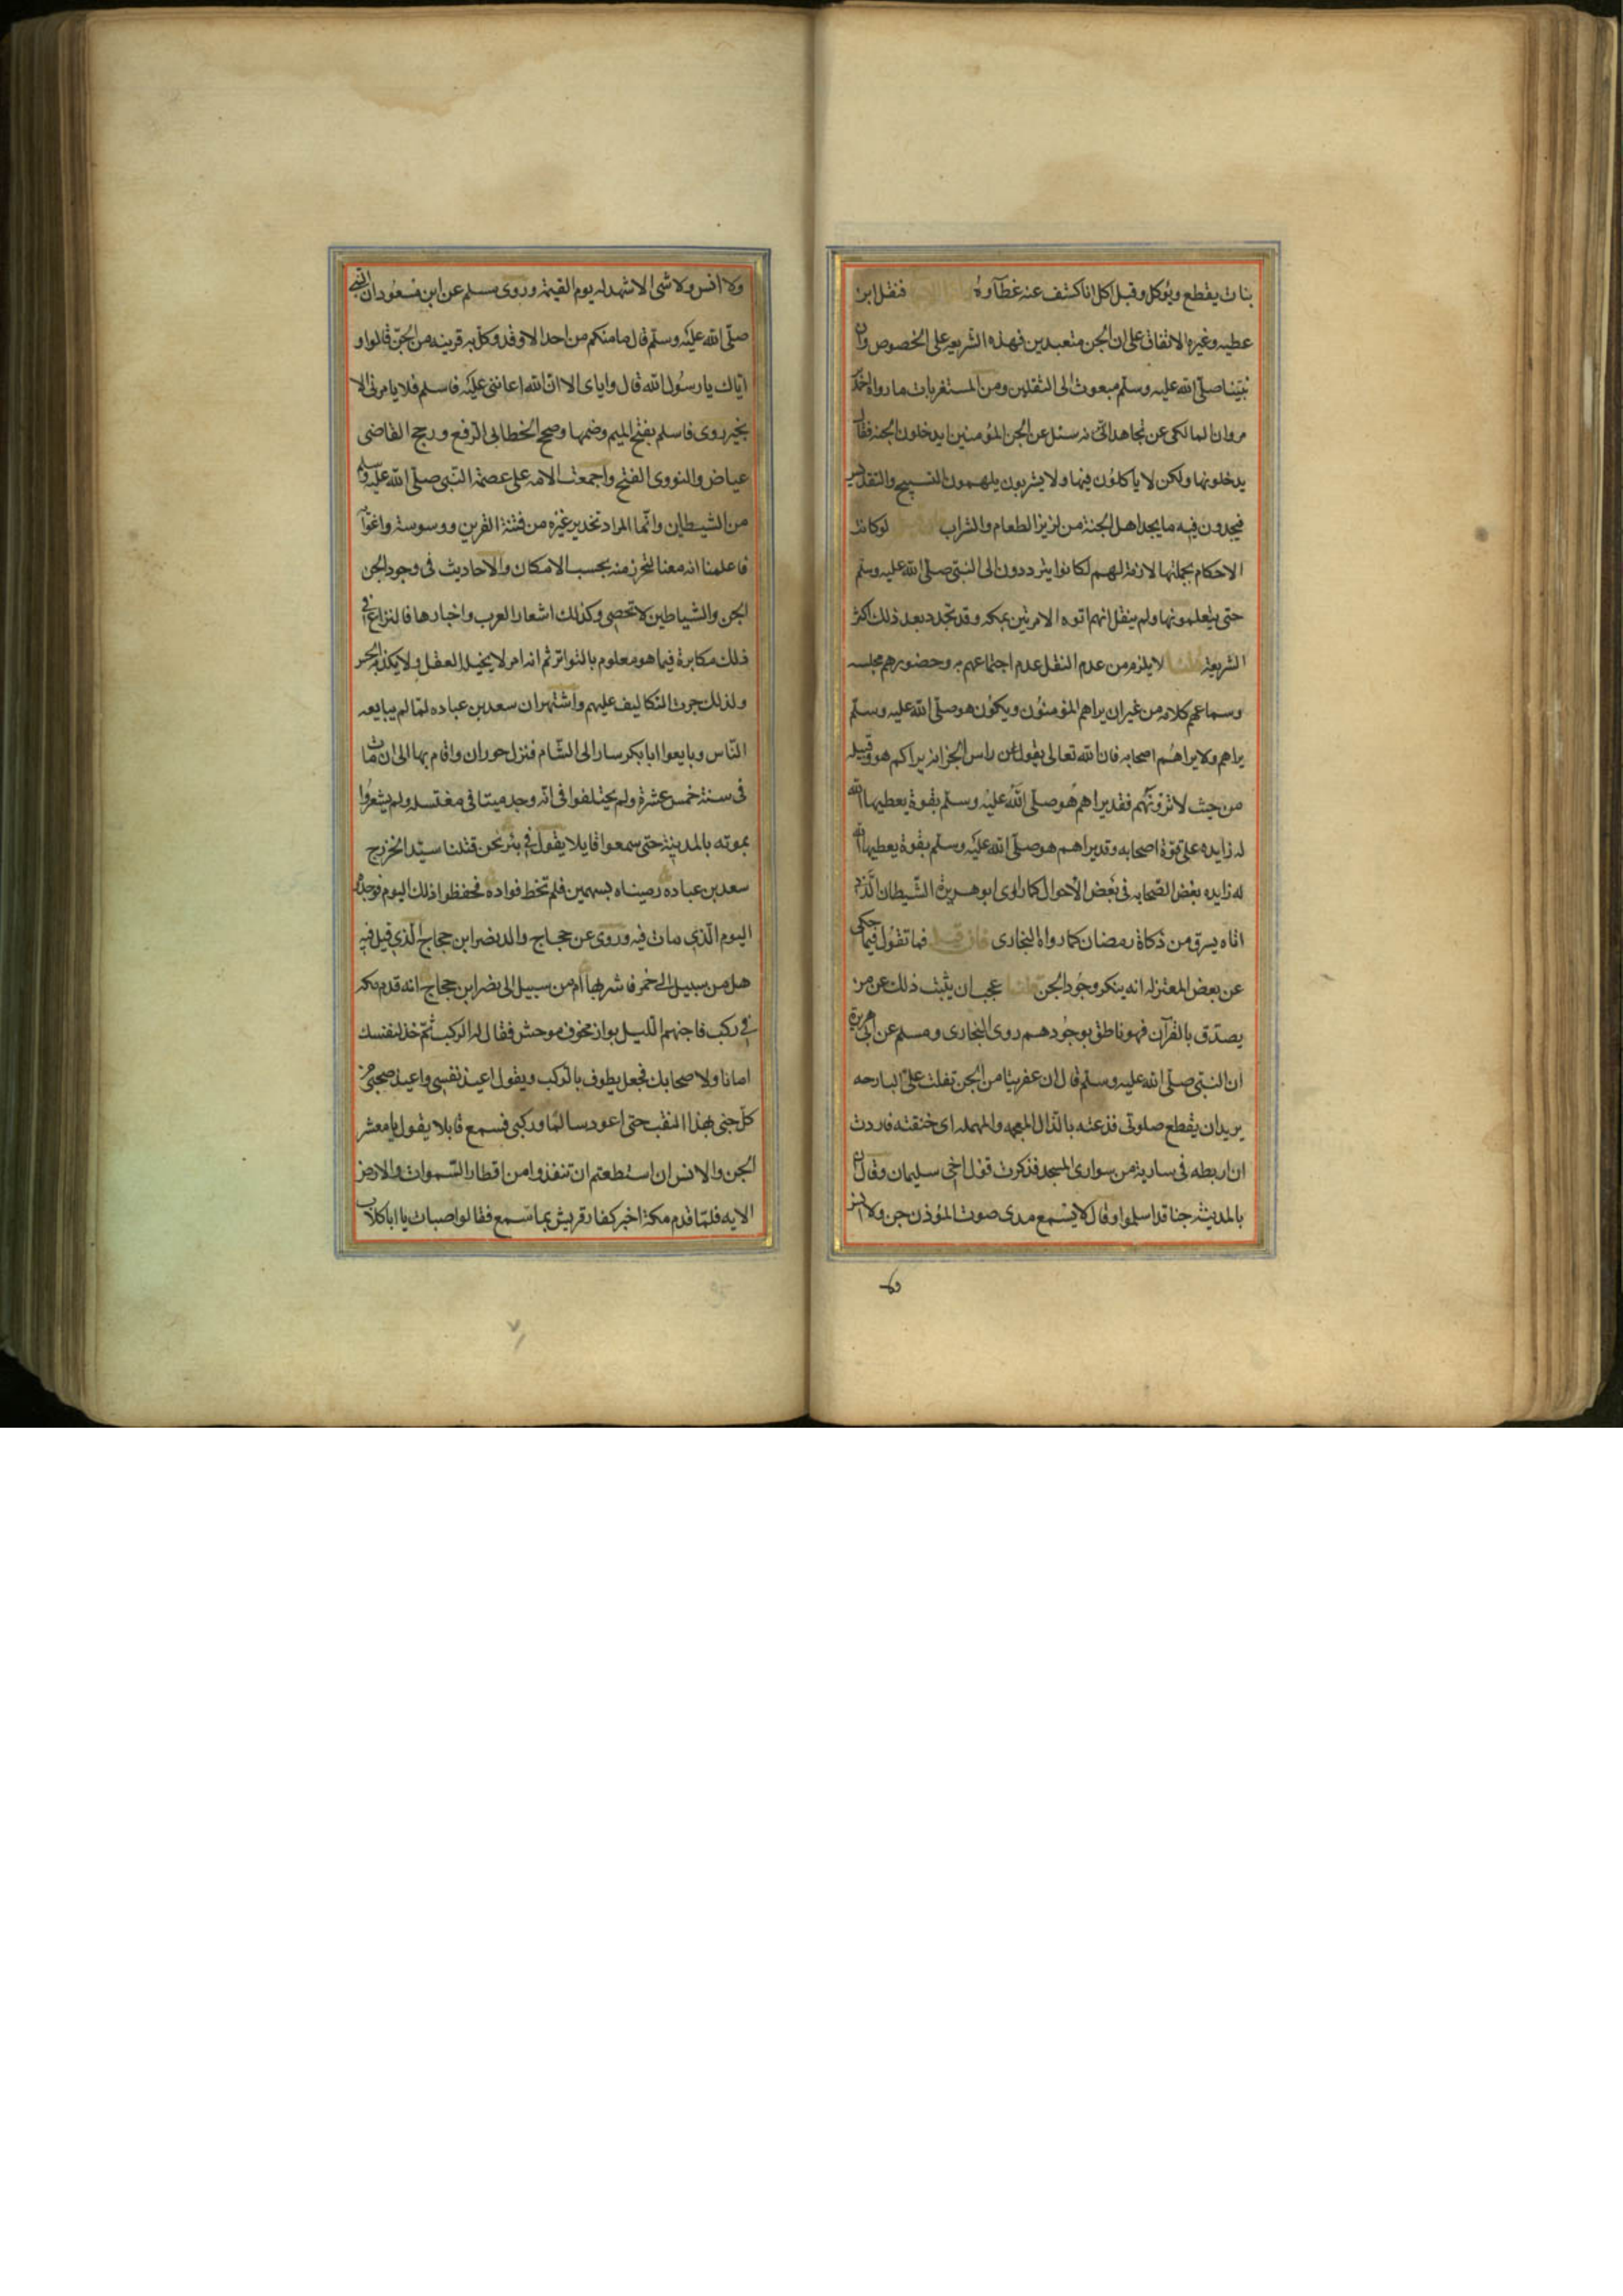 بنات يقطع ويؤكل وقيل كل انا كشف عنه غطآوه فنقل ابن
عطيه وغيره الاتفاق على ان الجن متعبدين فهذه الشريعه على الخصوص وان
نبينا صلى الله عليه وسلم مبعوث الى الثقلين ومن المستغربات ما رواه احمد
مروان المالكى عن مجاهد انه سئل عن الجن المؤمنين ايدخلون الجنه فقال
يدخلونها ولكن لا ياكلون فيها ولا يشربون يلهمون التسبيح والتقديس
فيجدون فيه ما يجد اهل الجنة من لذيذ الطعام والشراب لو كانت
الاحكام بجملتها لازمة لهم لكانوا يترددون الى النبى صلى الله عليه وسلم
حتى يتعلمونها ولم ينقل انهم اتوه الا مرتين بمكه وقد تجدد بعد ذلك اكثر
الشريعة قلنا لا يلزم من عدم النقل عدم اجتماعهم به وحضورهم مجلسه
وسماعهم كلامه من غير ان يراهم المؤمنون ويكون هو صلى الله عليه وسلم
يراهم ولا يراهم اصحابه فان الله تعالى يقول عن راس الجن انه يراكم هو وقبيله
من حيث لا ترونهم فقد يراهم هو صلى الله عليه وسلم بقوة يعطيها الله
له زايده على قوة اصحابه وقد يراهم هو صلى الله عليه وسلم بقوة يعطيها الله
له زايده بعض الصحابه فى بعض الاحوال كما راى ابو هريرة الشيطان الذى
اتاه يسرق من زكاة رمضان كما رواه البخارى فان قيل فما تقول فيما حكى
عن بعض المعتزله انه ينكر وجود الجن قلنا عجب ان يثبت ذلك عن من
يصدق بالقرآن فهو ناطق بوجودهم روى البخارى ومسلم عن ابى هريرة
ان النبى صلى الله عليه وسلم قال ان عفريتا من الجن تفلت على البارحه
يريد ان يقطع صلوتى فذعته بالذال المعجمه والمهمله اى خنقته فاردت
ان اربطه فى سارية من سوارى المسجد فذكرت قول اخى سليمان وقال ان
بالمدينة جنا قد اسلموا وقال لا يسمع مدى صوت المؤذن جن ولا انس
ولا انس ولا شى الا شهد له يوم القيمة وروى مسلم عن ابن مسعود ان النبى
صلى الله عليه وسلم قال ما منكم من احد الا وقد وكل به قرينه من الجن قالوا و
اياك يا رسول الله قال واياى الا ان الله اعاننى عليه فاسلم فلا يامرنى الا
بخير روى فاسلم بفتح الميم وضمها وصحح الخطابى الرفع ورجح القاضى
عياض والنووى الفتح واجمعت الامه على عصمة النبى صلى الله عليه وسلم
من الشيطان وانما المراد تحذير غيره من فتنة القرين ووسوسته واغوآئه
فاعلمنا انه معنا لنحترز منه بحسب الامكان والاحاديث فى وجود الجن
الجن والشياطين لا تحصى وكذلك اشعار العرب واخبارها فالنزاع فى
ذلك مكابرة فيما هو معلوم بالتواتر ثم انه امر لا يحيله العقل ولا يكذبه الحس
ولذلك جرت التكاليف عليهم واشتهر ان سعد بن عباده لما لم يبايعه
الناس وبايعوا ابا بكر سار الى الشام فنزل حوران واقام بها الى ان مات
فى سنة خمس عشرة ولم يختلفوا فى انه وجد ميتا فى مغتسله ولم يشعروا
بموته بالمدينة حتى سمعوا قايلا يقول فى بئر نحن قتلنا سيد الخزرج
سعد بن عباده رميناه بسهمين فلم تخط فواده فحفظوا ذلك اليوم فوجدوه
اليوم الذى مات فيه وروى عن حجاج والد نصر ابن حجاج الذى قيل فيه
هل من سبيل الى خمر فاشربها ام من سبيل الى نصر ابن حجاج انه قدم مكه
فى ركب فاجنهم الليل بواد مخوف موحش فقال له الركب قم خذ لنفسك
امانا ولاصحابك فجعل يطوف بالركب ويقول اعيذ نفسى واعيذ صحبى من
كل جنى بهذا النقب حتى اعود سالما وركبى فسمع قايلا يقول يا معشر
الجن والانس ان استطعتم ان تنفذوا من اقطار السموات والارض
الايه فلما قدم مكة اخبر كفار قريش بما سمع فقالوا صبات يا ابا كلاب